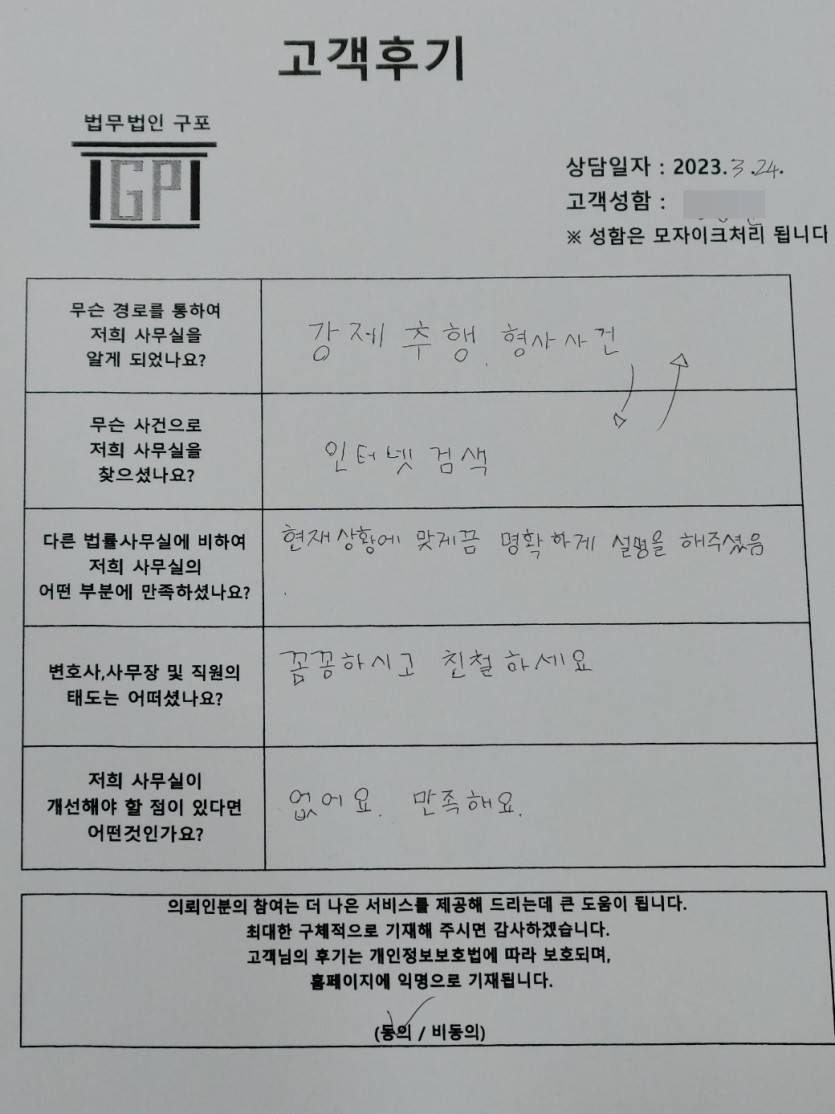 고객후기
법무법인 구포
GP
상담일자 : 2023.3.24.
고객성함 :
※ 성함은 모자이크처리 됩니다
무슨 경로를 통하여
저희 사무실을
알게 되었나요?
강제추행, 형사사건
무슨 사건으로
저희 사무실을
찾으셨나요?
인터넷 검색
다른 법률사무실에 비하여
저희 사무실의
어떤 부분에 만족하셨나요?
현재상황에 맞게끔 명확하게 설명을 해주셨음
변호사,사무장 및 직원의
태도는 어떠셨나요?
꼼꼼하시고 친철하세요
저희 사무실이
개선해야 할 점이 있다면
어떤것인가요?
없어요. 만족해요.
의뢰인분의 참여는 더 나은 서비스를 제공해 드리는데 큰 도움이 됩니다.
최대한 구체적으로 기재해 주시면 감사하겠습니다.
고객님의 후기는 개인정보보호법에 따라 보호되며,
홈페이지에 익명으로 기재됩니다.
(동의 / 비동의)